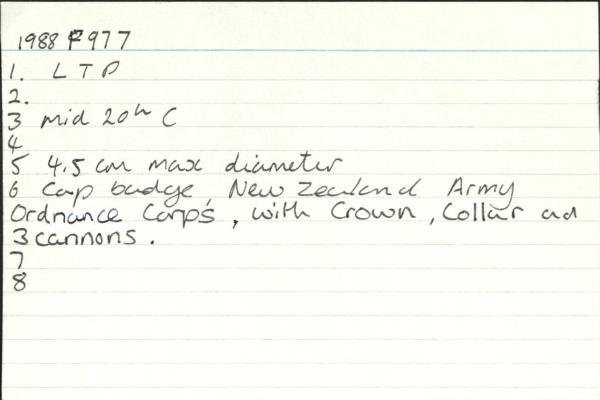 1988 F 977
1. LTP
2.
3 mid 20th C
4
5 4.5 cm max diameter
6 Cap badge, New Zealand Army
Ordnance Corps, with Crown, Collar ad
3 cannons.
7
8